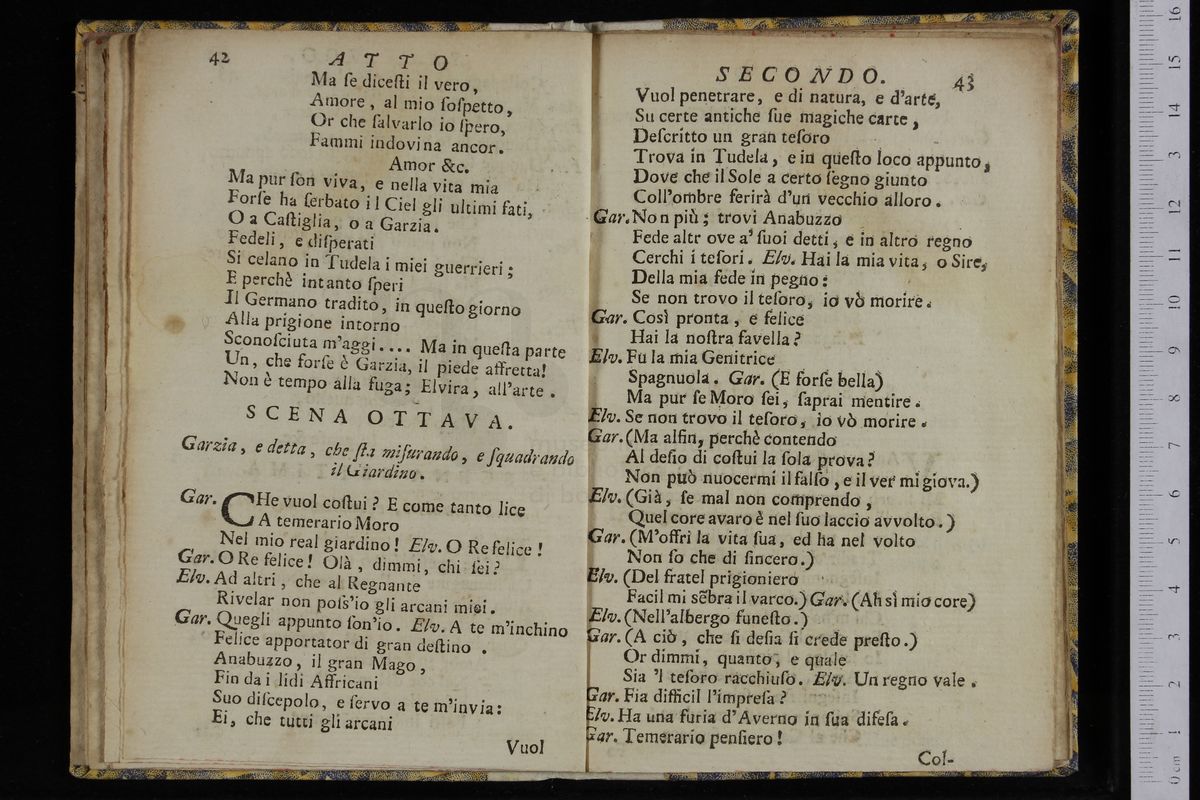 42
ATTO
Ma ſe diceſti il vero,
Amore, al mio ſoſpetto,
Or che ſalvarlo io ſpero,
Fammi indovina ancor.
Amor &c.
Ma pur ſon viva, e nella vita mia
Forſe ha ſerbato il Ciel gli ultimi fati,
O a Caſtiglia, o a Garzia.
Fedeli, e diſperati
Si celano in Tudela i miei guerrieri;
E perchè intanto ſperi
Il Germano tradito, in queſto giorno
Alla prigione intorno
Sconoſciuta m'aggi.... Ma in queſta parte
Un, che forſe è Garzia, il piede affretta!
Non è tempo alla fuga; Elvira, all'arte.
SCENA OTTAVA.
Garzia, e detta, che ſta miſurando, e ſquadrando
il Giardino.
Gar. CHe vuol coſtui? E come tanto lice
A temerario Moro
Nel mio real giardino! Elv. O Re felice!
Gar. O Re felice! Olà, dimmi, chi ſei?
Elv. Ad altri, che al Regnante
Rivelar non poſs'io gli arcani miei.
Gar. Quegli appunto ſon'io. Elv. A te m'inchino
Felice apportator di gran deſtino.
Anabuzzo, il gran Mago,
Fin da i lidi Affricani
Suo diſcepolo, e ſervo a te m'invia:
Ei, che tutti gli arcani
Vuol
SECONDO.
43
Vuol penetrare, e di natura, e d'arte,
Su certe antiche ſue magiche carte,
Deſcritto un gran teſoro
Trova in Tudela, e in queſto loco appunto,
Dove che il Sole a certo ſegno giunto
Coll'ombre ferirà d'un vecchio alloro.
Gar. Non più; trovi Anabuzzo
Fede altr ove a' ſuoi detti, e in altro regno
Cerchi i teſori. Elv. Hai la mia vita, o Sire,
Della mia fede in pegno:
Se non trovo il teſoro, io vò morire.
Gar. Così pronta, e felice
Hai la noſtra favella?
Elv. Fu la mia Genitrice
Spagnuola. Gar. (E forſe bella)
Ma pur ſe Moro ſei, ſaprai mentire.
Elv. Se non trovo il teſoro, io vò morire.
Gar. (Ma alfin, perchè contendo
Al deſio di coſtui la ſola prova?
Non può nuocermi il falſo, e il ver mi giova.)
Elv. (Già, ſe mal non comprendo,
Quel core avaro è nel ſuo laccio avvolto.)
Gar. (M'offri la vita ſua, ed ha nel volto
Non ſo che di ſincero.)
Elv. (Del fratel prigioniero
Facil mi sẽbra il varco.) Gar. (Ah sì mio core)
Elv. (Nell'albergo funeſto.)
Gar. (A ciò, che ſi deſia ſi crede preſto.)
Or dimmi, quanto, e quale
Sia 'l teſoro racchiuſo. Elv. Un regno vale.
Gar. Fia difficil l'impreſa?
Elv. Ha una furia d'Averno in ſua difeſa.
Gar. Temerario penſiero!
Col-